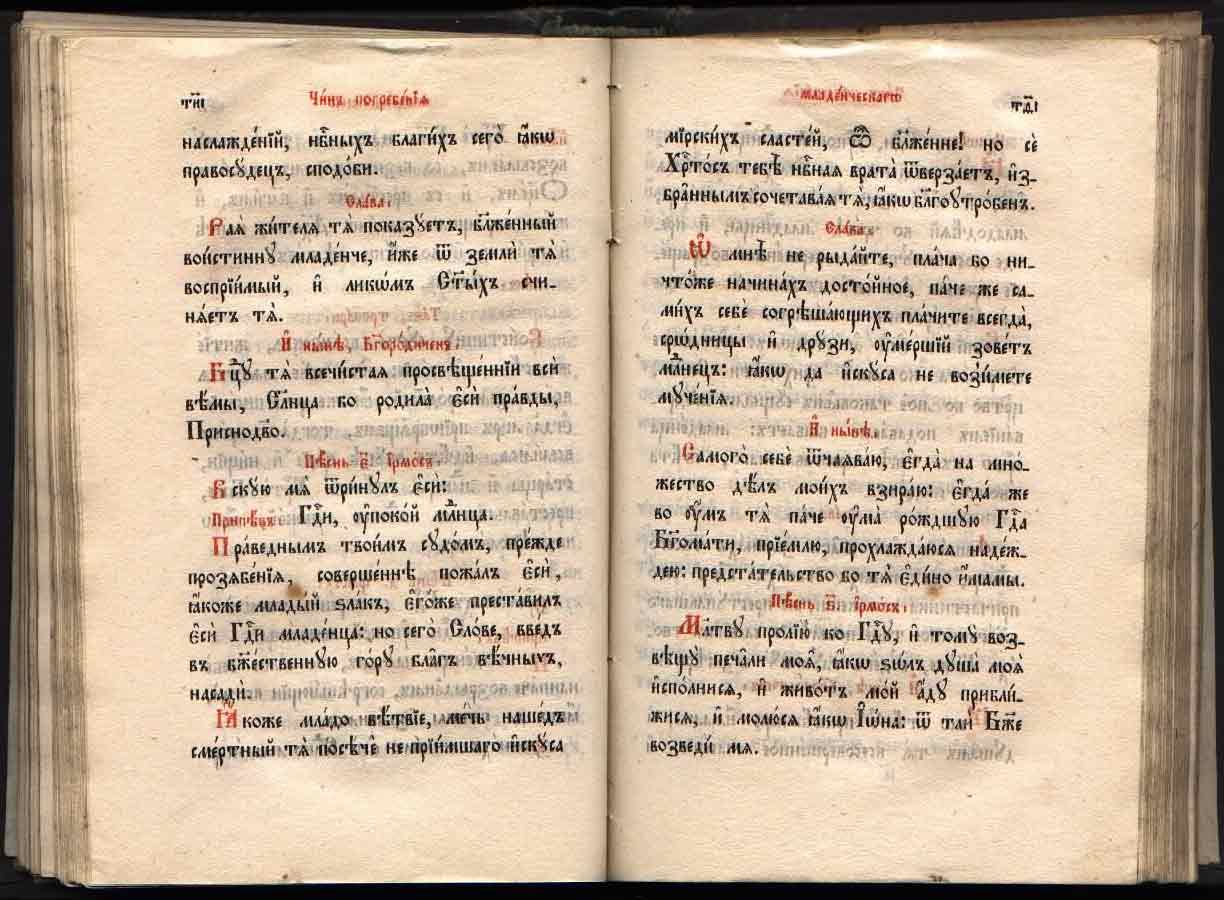 Чи́нъ погребе́нїѧ
наслажде́нїй, нб҃ныхъ благи́хъ сего̀ ꙗ҆́кѡ
правосу́децъ, сподо́би.
Сла́ва:
Раѧ̀ жи́телѧ тѧ̀ показꙋ́етъ, бл҃же́нный
вои́стиннꙋ младе́нче, и҆́же ѿ землѝ тѧ̀
воспрїи́мый, и҆ ликѡ́мъ ст҃ы́хъ счи-
нѧ́етъ тѧ̀.
И҆ ны́нѣ, Бг҃оро́диченъ.
Бц҃ꙋ тѧ̀ всечи́стаѧ просвѣще́ннїи всѝ
вѣ́мы, Сл҃нца бо родила̀ є҆сѝ пра́вды,
Приснодв҃о.
Пѣ́снь є҃. І҆рмо́съ.
Вскꙋ́ю мѧ̀ ѿри́нꙋлъ є҆сѝ:
Припѣ́въ: Гд҇и, ᲂу҆поко́й млⷣнца.
Пра́веднымъ твои́мъ сꙋдо́мъ, пре́жде
прозѧбе́нїѧ, соверше́ннѣ пожа́лъ є҆сѝ,
ꙗ҆́коже млады́й ѕла́къ, є҆го́же преста́вилъ
є҆сѝ Гд҇и младе́нца: но сего̀ Сло́ве, введъ
въ бж҃е́ственнꙋю го́рꙋ бла́гъ вѣ́чныхъ,
насадѝ.
Ꙗ҆́коже мла́до вѣ́твїе, ме́чь наше́дъ
сме́ртный тѧ̀ посѣчѐ не прїи́мшаго и҆́скꙋса
младе́нческагѡ
мїрски́хъ сласте́й, ѽ бл҃же́ние! но сѐ
Хрⷭ҇то́съ тебѣ̀ нб҃наѧ врата̀ ѿверза́етъ, и҆з-
бра̑ннымъ сочетава́ѧ тѧ̀, ꙗ҆́кѡ бл҃гоꙋтро́бенъ.
Сла́ва.
Ѡ҆ мнѣ̀ не рыда́йте, пла́ча бо ни-
что́же начина́хъ досто́йное, па́че же са-
ми́хъ себѐ согрѣша́ющихъ пла́чите всегда̀,
срѡ́дницы и҆ дрꙋ́зи, ᲂу҆ме́ршїй зове́тъ
млⷣнецъ: ꙗ҆́кѡ да и҆́скꙋса не во́зꙗ҆мете
мꙋче́нїѧ.
И҆ ны́нѣ.
Самого̀ себѐ ѿчаѧва́ю, є҆гда̀ на мно́-
жество дѣ́лъ мои́хъ взира́ю: є҆гда́ же
во ᲂу҆́мъ тѧ̀ па́че ᲂу҆ма̀ ро́ждшꙋю Гд҇а
Бг҃ома́ти, прїе́млю, прохлажда́юсѧ наде́ж-
дею: предста́тельство бо тѧ̀ є҆ди́но и҆́мамы.
Пѣ́снь ѕ҃. І҆рмо́съ:
Мл҃твꙋ пролїю̀ ко Гд҇ꙋ, и҆ томꙋ̀ воз-
вѣщꙋ̀ печа́ли моѧ̑, ꙗ҆́кѡ ѕѡ́лъ дꙋша̀ моѧ̀
и҆спо́лнисѧ, и҆ живо́тъ мо́й а҆́дꙋ прибли́-
жисѧ, и҆ молю́сѧ ꙗ҆́кѡ І҆ѡ́на: ѿ тлѝ Бж҃е
возведѝ мѧ.